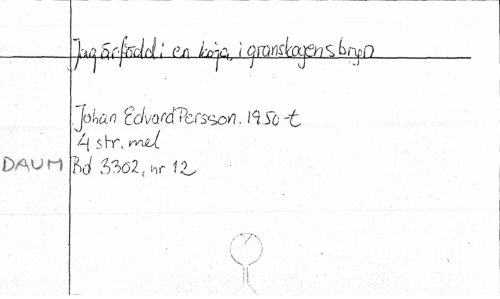 Jag är född i en koja, i granskogens bryn
Johan Edvard Persson. 1950-t
4 str. mel
DAUM Bd 3302, nr 12